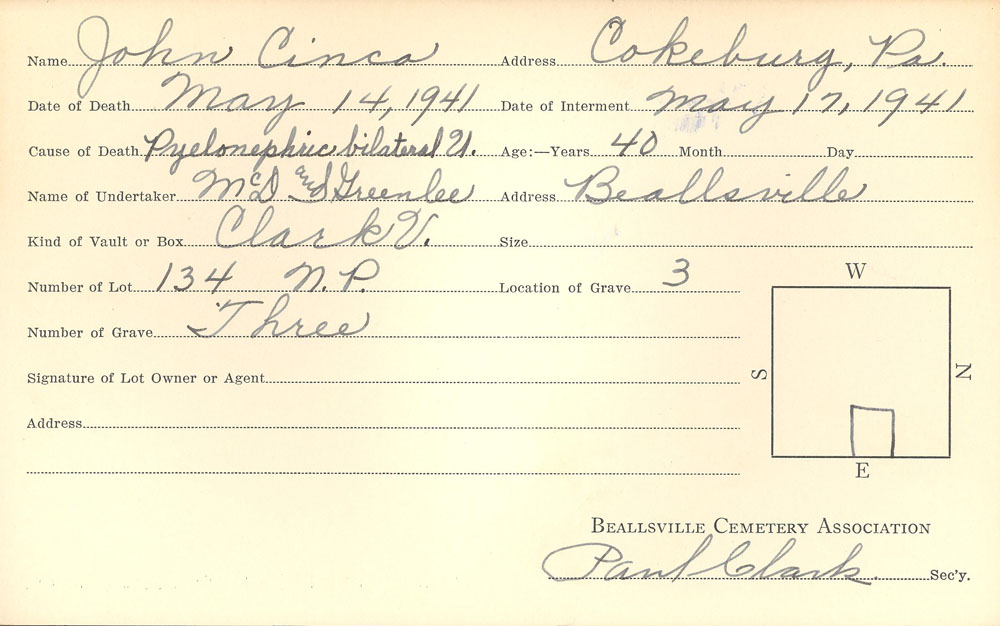 Name John Cinco Address Cokeburg, Pa.
Date of Death May 14, 1941 Date of Interment May 17, 1941
Cause of Death Pyelonephric bilateral U. Age:—Years 40 Month Day
Name of Undertaker McD and Greenlee Address Beallsville
Kind of Vault or Box Clark V. Size
Number of Lot 134 N. P. Location of Grave 3
W
Number of Grave Three
Signature of Lot Owner or Agent
S N
Address
E
Beallsville Cemetery Association
Paul Clark Sec'y.